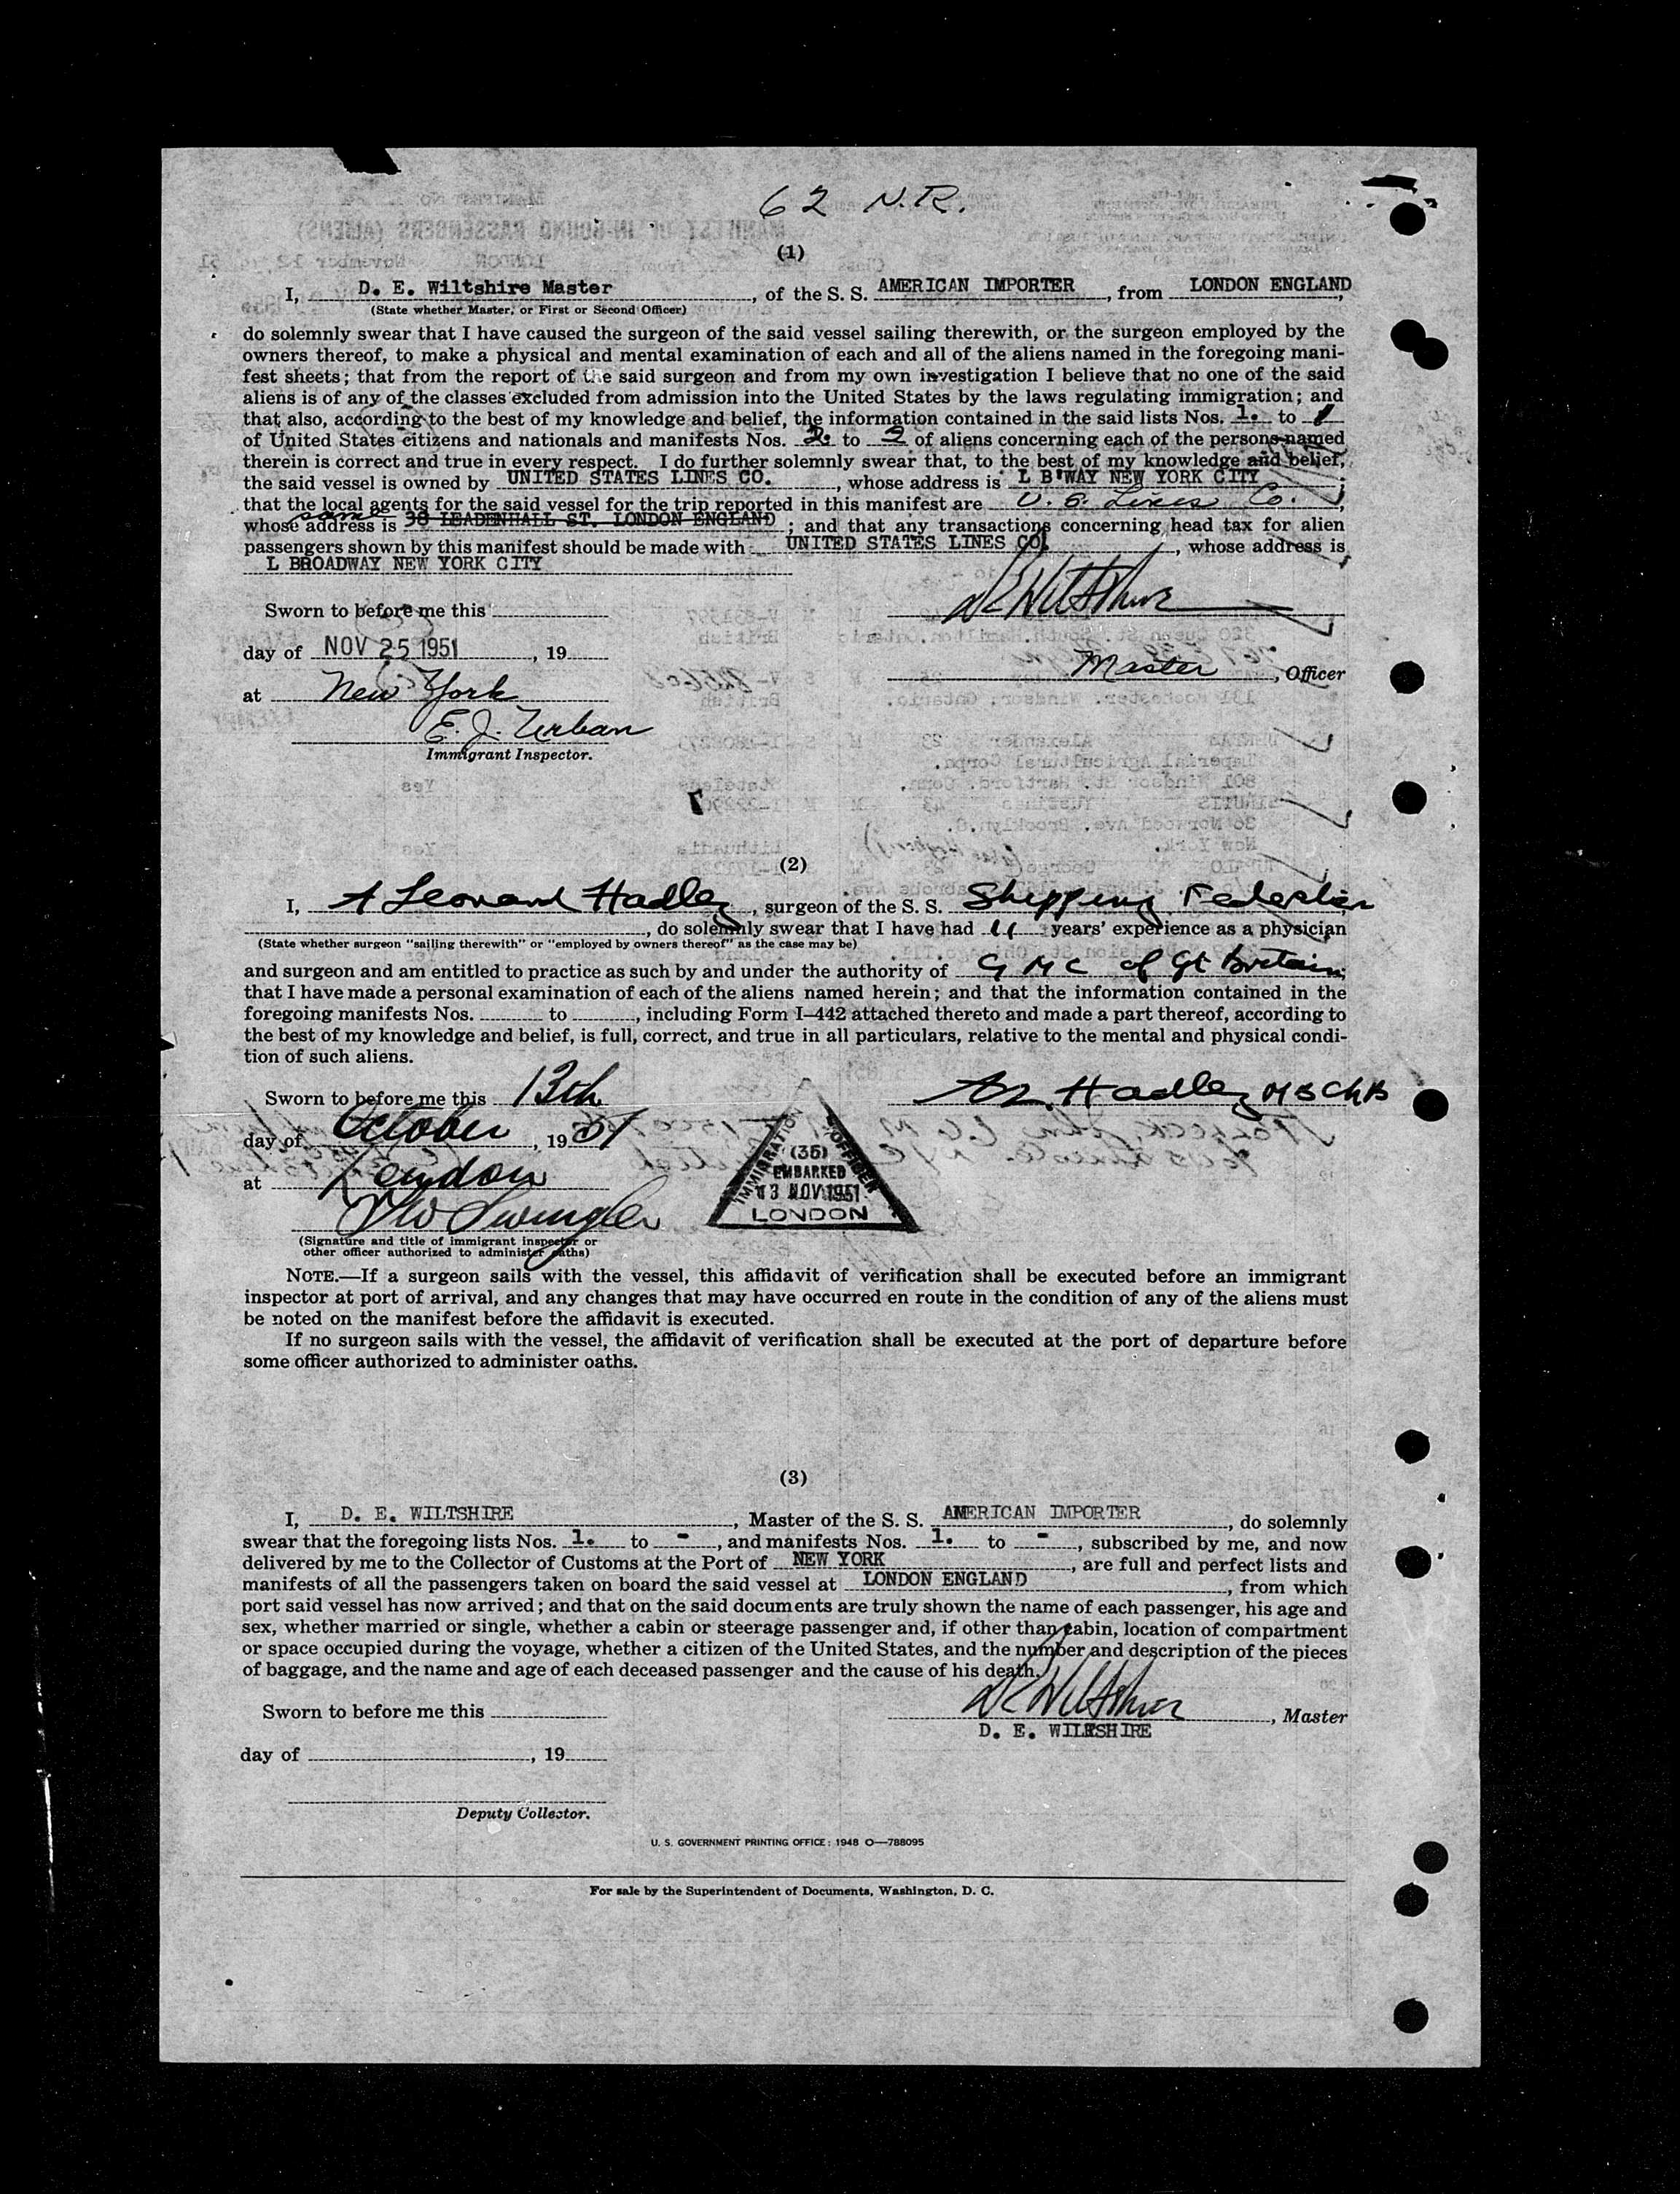 62 N.R.
(1)
I, D. E. Wiltshire Master, of the S. S. AMERICAN IMPORTER, from LONDON ENGLAND,
(State whether Master, or First or Second Officer)
do solemnly swear that I have caused the surgeon of the said vessel sailing therewith, or the surgeon employed by the
owners thereof, to make a physical and mental examination of each and all of the aliens named in the foregoing mani-
fest sheets; that from the report of the said surgeon and from my own investigation I believe that no one of the said
aliens is of any of the classes excluded from admission into the United States by the laws regulating immigration; and
that also, according to the best of my knowledge and belief, the information contained in the said lists Nos. 1. to 1
of United States citizens and nationals and manifests Nos. 2. to 2 of aliens concerning each of the persons named
therein is correct and true in every respect. I do further solemnly swear that, to the best of my knowledge and belief,
the said vessel is owned by UNITED STATES LINES CO., whose address is L B'WAY NEW YORK CITY;
that the local agents for the said vessel for the trip reported in this manifest are U. S. Lines Co.,
whose address is same 38 LEADENHALL ST. LONDON ENGLAND; and that any transactions concerning head tax for alien
passengers shown by this manifest should be made with UNITED STATES LINES CO., whose address is
L BROADWAY NEW YORK CITY
Sworn to before me this
DE Wiltshire
day of NOV 25 1951, 19
Master, Officer
at New York
E. J. Urban
Immigrant Inspector.
(2)
I, A Leonard Hadley, surgeon of the S. S. Shipping Federation
, do solemnly swear that I have had 11 years' experience as a physician
(State whether surgeon "sailing therewith" or "employed by owners thereof" as the case may be)
and surgeon and am entitled to practice as such by and under the authority of G M C of Gt Britain;
that I have made a personal examination of each of the aliens named herein; and that the information contained in the
foregoing manifests Nos. to , including Form I–442 attached thereto and made a part thereof, according to
the best of my knowledge and belief, is full, correct, and true in all particulars, relative to the mental and physical condi-
tion of such aliens.
Sworn to before me this 13th
Hadley MB ChB
day of October, 1951
at London
IMMIGRATION OFFICER
(36)
EMBARKED
13 NOV 1951
LONDON
(Signature and title of immigrant inspector or
other officer authorized to administer oaths)
NOTE.—If a surgeon sails with the vessel, this affidavit of verification shall be executed before an immigrant
inspector at port of arrival, and any changes that may have occurred en route in the condition of any of the aliens must
be noted on the manifest before the affidavit is executed.
If no surgeon sails with the vessel, the affidavit of verification shall be executed at the port of departure before
some officer authorized to administer oaths.
(3)
I, D. E. WILTSHIRE, Master of the S. S. AMERICAN IMPORTER, do solemnly
swear that the foregoing lists Nos. 1. to -, and manifests Nos. 1. to -, subscribed by me, and now
delivered by me to the Collector of Customs at the Port of NEW YORK, are full and perfect lists and
manifests of all the passengers taken on board the said vessel at LONDON ENGLAND, from which
port said vessel has now arrived; and that on the said documents are truly shown the name of each passenger, his age and
sex, whether married or single, whether a cabin or steerage passenger and, if other than cabin, location of compartment
or space occupied during the voyage, whether a citizen of the United States, and the number and description of the pieces
of baggage, and the name and age of each deceased passenger and the cause of his death.
Sworn to before me this
DE Wiltshire, Master
D. E. WILTSHIRE
day of , 19
Deputy Collector.
U. S. GOVERNMENT PRINTING OFFICE: 1948 O—788095
For sale by the Superintendent of Documents, Washington, D. C.